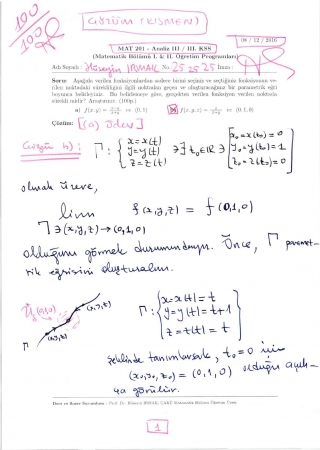 100
100
ÇÖZÜM (KISMEN)
08 / 12 / 2016
MAT 201 - Analiz III / III. KSS
(Matematik Bölümü I. & II. Öğretim Programları)
Adı Soyadı : Hüseyin IRMAK No: 25 25 25 İmza :
Soru: Aşağıda verilen fonksiyonlardan sadece birini seçin ve seçtiğiniz fonksiyonun verilen noktadaki sürekliliğini ilgili noktadan geçen ve oluşturacağınız bir parametrik eğri boyunca belirleyiniz. Bu belirlemeye göre, gerçekten verilen fonksiyon verilen noktada sürekli midir? Araştırınız (100p.)
a) f(x,y) = (0,1) b) f(x,y,z) = (0,1,0)
Çözüm: [(a) Ödev]
Çözüm b): Γ: { x=x(t) y=y(t) z=z(t) ∋ ∃ t₀∈ℝ ∋ [ x₀=x(t₀)=0 y₀=y(t₀)=1 z₀=z(t₀)=0 ]
olmak üzere,
lim f(x,y,z) = f(0,1,0)
Γ∋(x,y,z)→(0,1,0)
olduğunu görmek durumundayız. Önce, Γ paramet-
rik eğrisini oluşturalım.
(x,y,z)
Γ: { x=x(t)=t y=y(t)=t+1 z=z(t)=t
(x,y,z)
şeklinde tanımlarsak, t₀=0 için
(x₀,y₀,z₀) = (0,1,0) olduğu açık-
ça görülür.
Ders ve Sınav Sorumlusu : Prof. Dr. Hüseyin IRMAK, ÇAKÜ Matematik Bölümü Öğretim Üyesi
1